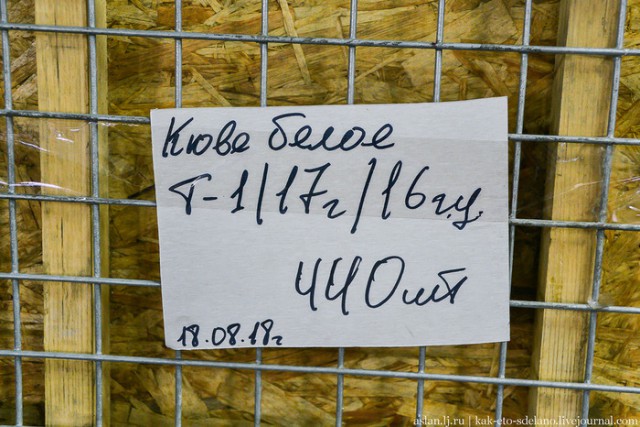 Кюве белое
Т-1/17г/16г.ц.
440шт
18.08.18г
aslan.lj.ru | kak-eto-sdelano.livejournal.com